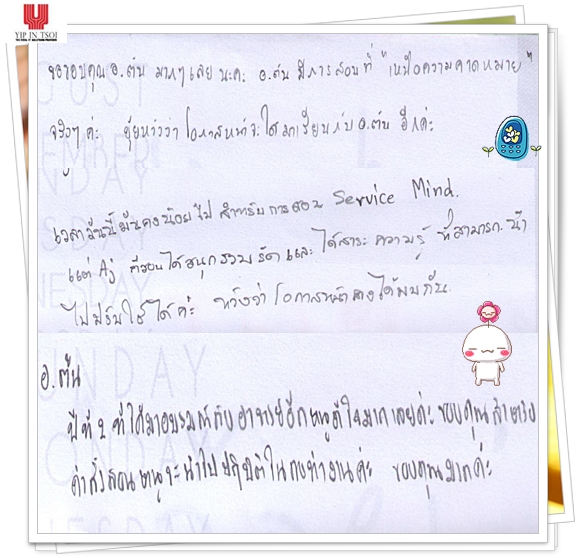 YIP IN TSOI
ขอขอบคุณ อ.ต้น มากๆเลย นะคะ อ.ต้น มีการสอนที่ "เหนือความคาดหมาย"
จริงๆ ค่ะ หวังว่า โอกาสหน้าจะได้มาเรียนกับ อ.ต้น อีกค่ะ
เวลาวันนี้มันคงน้อยไป สำหรับการสอน Service Mind.
แต่ Aj ก็สอนได้สนุกรวบรัด และ ได้สาระ ความรู้ ที่สามารถนำ
ไปปรับใช้ได้ค่ะ หวังว่าโอกาสหน้าคงได้พบกัน
อ.ต้น
ปีที่ 2 ที่ได้มาอบรมกับอาจารย์อีกหนูดีใจมากเลยค่ะ ขอบคุณสำหรับ
คำสั่งสอนหนูจะนำไปปฏิบัติในการทำงานค่ะ ขอบคุณมากค่ะ